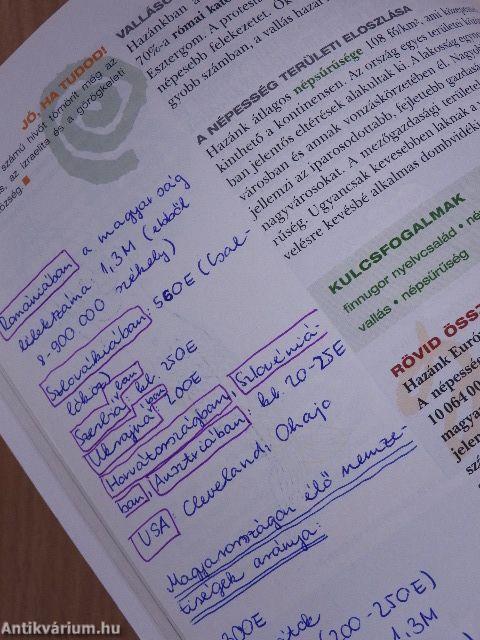 JÓ, HA TUDOD!
számú hívőt tömörít még az
az izraelita és a görögkeleti
község
VALLÁSO
Hazánkban a
70%-a római kat
Esztergom. A protestá
népesebb felekezetet. Ök
gyobb számban, a vallás hazai
A NÉPESSÉG TERÜLETI ELOSZLÁSA
Hazánk átlagos népsűrűsége 108 fő/km², ami közepes
kinthető a kontinensen. Az ország egyes területei között
ban jelentős eltérések alakultak ki. A lakosság egy
városban és annak vonzáskörzetében él. Nagyob
jellemzi az iparosodottabb, fejlettebb gazdasá
nagyvárosokat. A mezőgazdasági területe
rűség. Ugyancsak kevesebben laknak a
velésre kevésbé alkalmas dombvidék
KULCSFOGALMAK
finnugor nyelvcsalád • né
vallás • népsűrűség
RÖVID ÖSSZ
Hazánk Euró
A népessé
10 064 00
magya
jelen
Romániában a magyarság
lélekszáma 1,3M (ebből
8-900.000 székely)
Szlovákiában: 560E (Csal-
lóköz)
Szerbiában: kb. 250E
Ukrajnában: 200E
Horvátországban, Szlovéniá-
ban, Ausztriában: kb. 20-25E
USA: Cleveland, Ohajo
Magyarországon élő nemze-
tiségek aránya:
300E
(200-250E)
1,3M
Antikvárium.hu